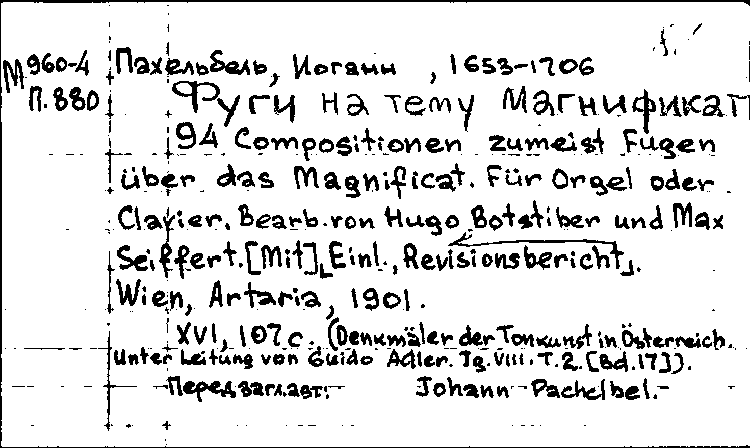 М 960-4 Пахельбель, Иоганн , 1653-1706
П.880 Фуги на тему Магнификат
94 Compositionen zumeist Fugen
über das Magnificat. Für Orgel oder
Clavier. Bearb. von Hugo Botstiber und Max
Seiffert. [Mit] Einl., Revisionsbericht.
Wien, Artaria, 1901.
XVI, 107 c. (Denkmäler der Tonkunst in Österreich.
Unter Leitung von Guido Adler. Jg. VIII. T. 2. [Bd. 17]).
Перед загл. авт: Johann Pachelbel.